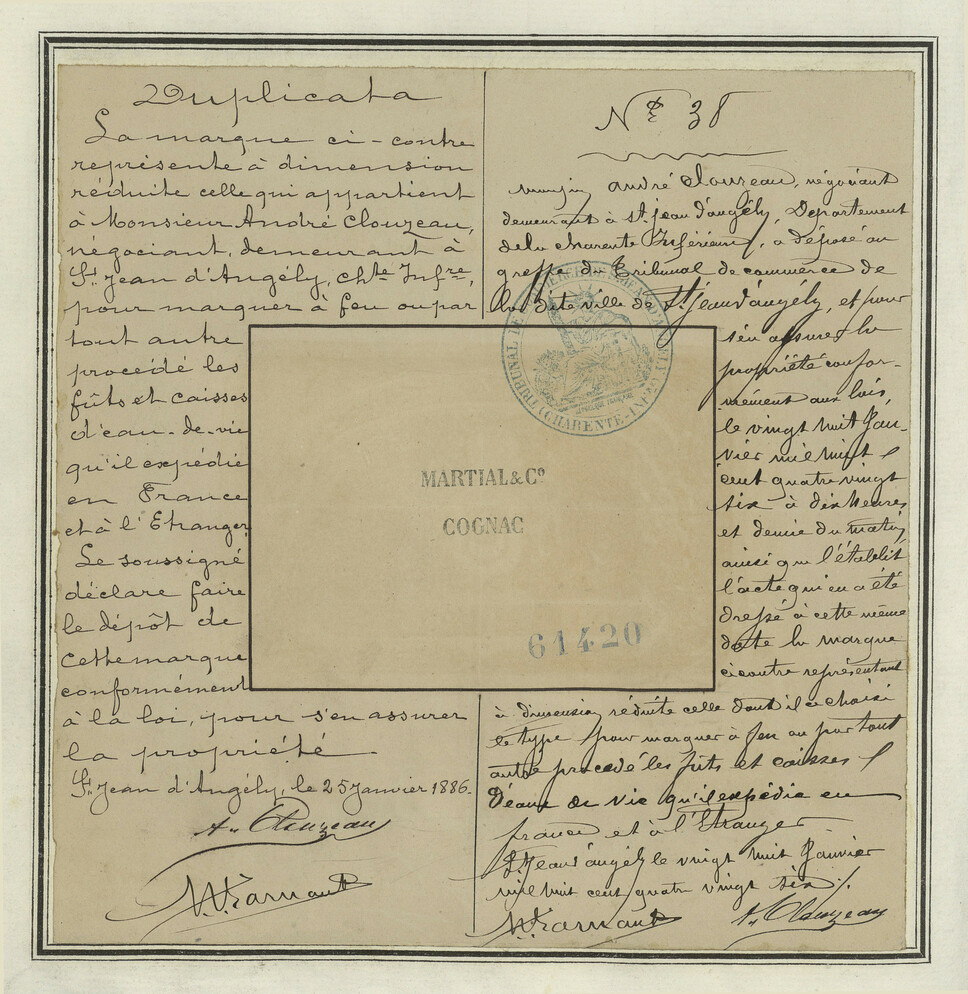 Duplicata
La marque ci-contre
représente à dimension
réduite celle qui appartient
à Monsieur André Clouzeau,
négociant, demeurant à
St. Jean d'Angély, Chte Infre,
pour marquer à feu ou par
tout autre
procédé les
fûts et caisses
d'eau-de-vie
qu'il expédie
en France
et à l'Etranger.
Le soussigné
déclare faire
le dépôt de
cette marque
conformément
à la loi, pour s'en assurer
la propriété
St. Jean d'Angély, le 25 Janvier 1886.
A. Clouzeau
MARTIAL & Co
COGNAC
61420
TRIBUNAL DE COMMERCE DE ST JEAN D'ANGELY
(CHARENTE-INFRE)
No 38
André Clouzeau, négociant
demeurant à St Jean d'angély, Département
de la Charente Inférieure, a déposé au
greffe du Tribunal de commerce de
la dite ville de St Jean d'angély, et pour
s'en assurer la
propriété confor-
mément aux lois,
le vingt huit Jan-
vier mil huit
cent quatre vingt
six à dix heures
et demie du matin,
ainsi que l'établit
l'acte qui en a été
dressé à cette même
date la marque
ci contre représentant
à dimension réduite celle dont il a choisi
le type pour marquer à feu ou par tout
autre procédé les fûts et caisses
d'eaux de vie qu'il expédie en
france et à l'Etranger
St Jean d'angély le vingt huit Janvier
mil huit cent quatre vingt six
A. Clouzeau